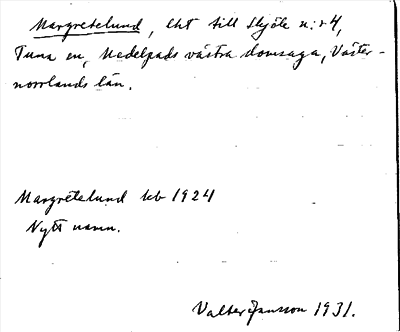 Margretelund, lht till Skjöle n:r 4,
Tuna sn, Medelpads västra domsaga, Väster-
norrlands län.
Margretelund lub 1924
Nytt namn.
Valter Jansson 1931.